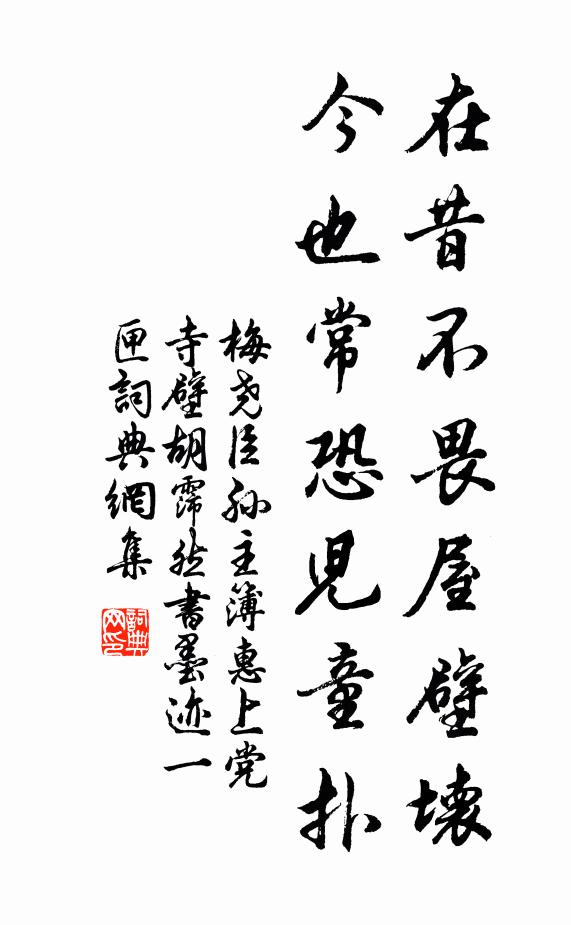 在昔不畏屋壁壞
今也常恐児童扑
梅尧臣孙主簿惠上党
寺壁胡霈然書墨迹一
匣詞典網集
詞典網印